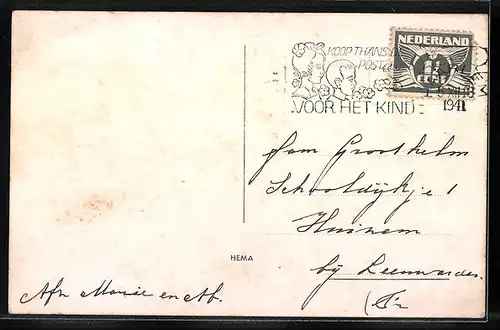 KOOP THANS
POSTZ
VOOR HET KIND
NEDERLAND
CENT
1941
Fam Groothelm
Schooldijkje 1
Huizum
bij Leeuwarden
(Fr
HEMA
Afz Marie en Ab.